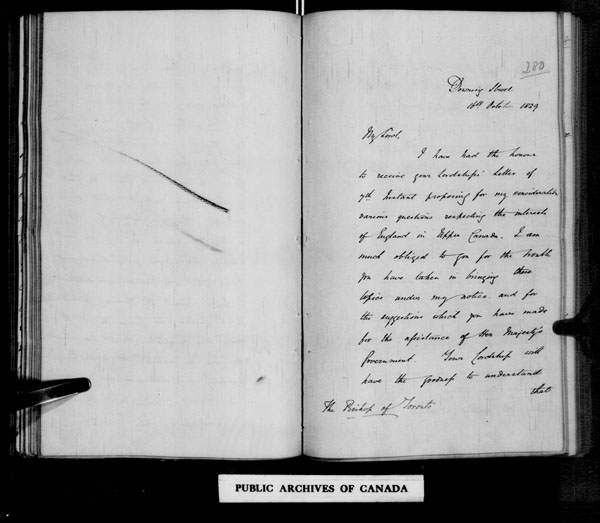 180
Downing Street
18th October 1839
My Lord,
I have had the honour
to receive your Lordship's Letter of
7th Instant proposing for my consideration
various questions respecting the interests
of England in Upper Canada. I am
much obliged to you for the trouble
you have taken in bringing these
topics under my notice and for
the suggestions which you have made
for the assistance of Her Majesty's
Government. Your Lordship will
have the goodness to understand
that
The Bishop of Toronto
PUBLIC ARCHIVES OF CANADA